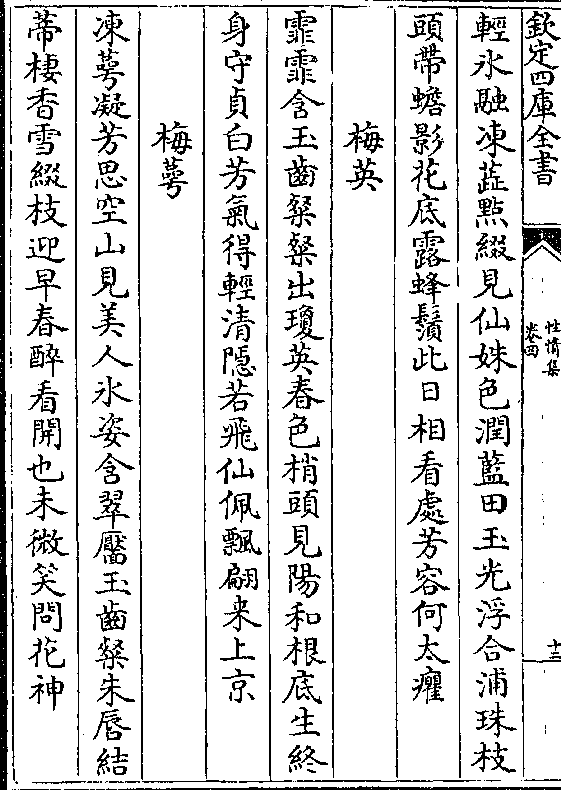 欽定四庫全書
性情集
卷四
十三
輕氷融凍蕋㸃綴見仙姝色潤藍田玉光浮合浦珠枝
頭帶蟾影花底露蜂鬚此日相看處芳容何太癯
梅英
霏霏含玉齒粲粲出瓊英春色梢頭見陽和根底生終
身守貞白芳氣得輕清隠若飛仙佩飄翩来上京
梅萼
凍萼凝芳思空山見美人氷姿含翠靨玉齒粲朱唇結
蒂棲香雪綴枝迎早春醉看開也未微笑問花神